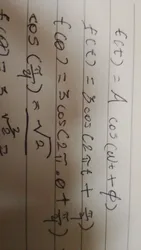 f(t) = A cos(ωt + φ)
f(t) = 3 cos(2πt + π/4)
f(0) = 3 cos(2π.0 + π/4)
cos(π/4) = √2
f(0) = 3